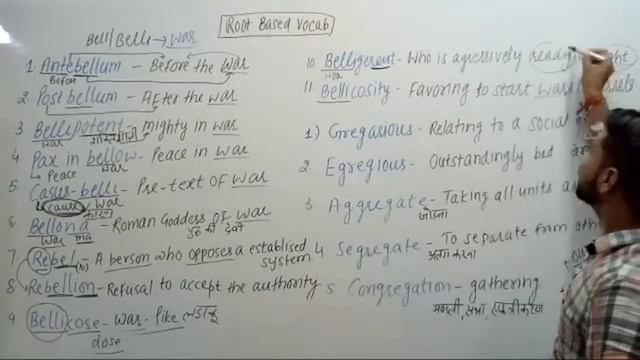 Root Based Vocab
Bell/Belli → War
1. Antebellum - Before the war
Before
2. Postbellum - After the war
3 Bellipotent - Mighty in war
war शक्तिशाली
4 Pax in bellow - Peace in war
↳ Peace war
5 Casus-belli - Pre-text of war
cause war कारण
6 Bellona - Roman Goddess of war
war ma युद्ध की देवी
7 Rebel (n) A person who opposes a establised system.
8 Rebellion - Refusal to accept the authority
9 Bellicose - War - like लड़ाकू
dose
10. Belligerent - Who is agressively ready
war
11. Bellicosity - Favoring to start war
1) Gregarious - Relating to a social
2 Egregious - Outstandingly bad
3 Aggregate - Taking all units
जोड़ना
4 Segregate - To separate from
अलग करना
5 Congregation - gathering
मण्डली, सभा, एकत्रीकरण